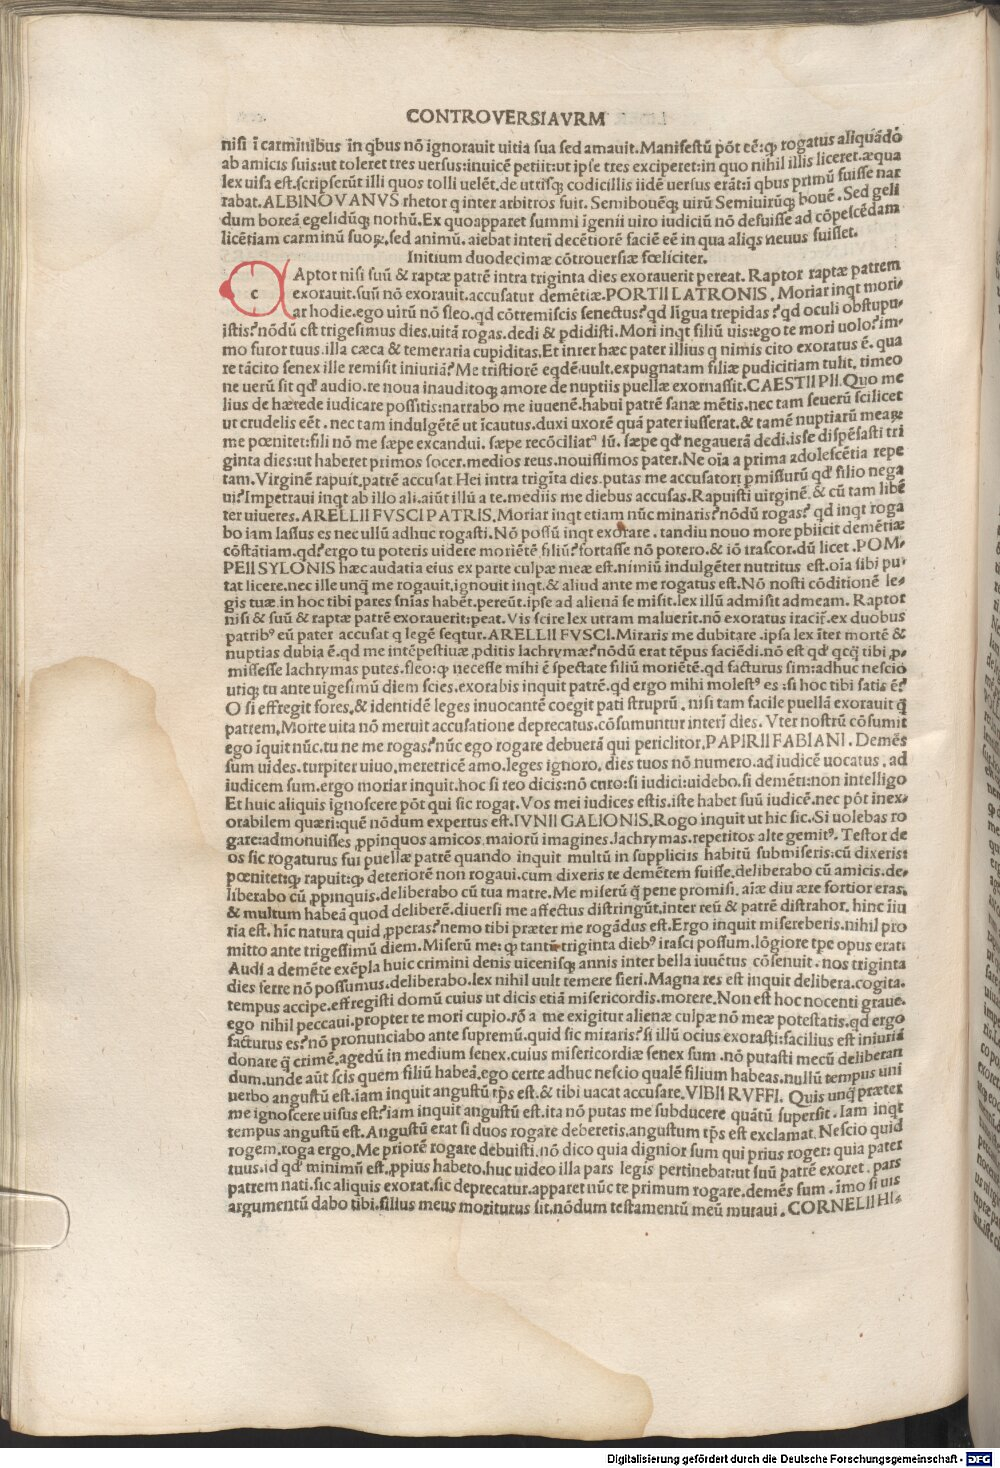 CONTROVERSIAVRM
nisi ĩ carminibus in q̃bus nõ ignorauit uitia sua sed amauit.Manifestũ põt eẽ:ꝙ rogatus aliquãdo
ab amicis suis:ut toleret tres uersus:inuicẽ petiit:ut ipse tres exciperet:in quo nihil illis liceret.æqua
lex uisa est.scripserũt illi quos tolli uelẽt.de utrisq; codicillis iidẽ uersus erãt:ĩ qbus primũ fuisse nar
rabat.ALBINOVANVS rhetor q inter arbitros fuit. Semibouẽq; uirũ Semiuirũq; bouẽ. Sed geli
dum boreã egelidũq; nothũ.Ex quoapparet summi ĩgenii uiro iudiciũ nõ defuisse ad cõpescẽdam
licẽtiam carminũ suoꝝ.sed animũ. aiebat interĩ decẽtiorẽ faciẽ eẽ in qua aliqs neuus fuisset.
Initium duodecimæ cõtrouersiæ fœliciter.
c
Aptor nisi suũ & raptæ patrẽ intra triginta dies exorauerit pereat. Raptor raptæ patrem
exorauit.suũ nõ exorauit.accusatur demẽtiæ.PORTII LATRONIS. Moriar inqt mori⸗
ar hodie.ego uirũ nõ fleo.qd cõtremiscis senectus? qd ligua trepidas? qd oculi obstupu⸗
istis? nõdũ est trigesimus dies.uitã rogas.dedi & pdidisti. Mori inqt filiũ uis:ego te mori uolo? im⸗
mo furor tuus.illa cæca & temeraria cupiditas.Et inter hæc pater illius q nimis cito exoratus ẽ. qua
re tãcito senex ille remisit iniuriã? Me tristiorẽ eqdẽ:uult.expugnatam filiæ pudicitiam tulit. timeo
ne uerũ sit qd audio.re noua inauditoq; amore de nuptiis puellæ exornassit.CAESTII PII.Quo me
lius de hærede iudicare possitis:narrabo me iuuenẽ.habui patrẽ sanæ mẽtis.nec tam seuerũ scilicet
ut crudelis eẽt. nec tam indulgẽtẽ ut ĩcautus.duxi uxorẽ quã pater iusserat.& tamẽ nuptiarũ meaꝝ
me pœnitet:fili nõ me sæpe excandui. sæpe recõciliatꝰ sũ. sæpe qd negauerã dedi.is se dispẽsasti tri
ginta dies:ut haberet primos socer.medios reus.nouissimos pater.Ne oĩa a prima adolescẽtia repe
tam.Virginẽ rapuit.patrẽ accusat Hei intra trigĩta dies.putas me accusatori p̃missurũ qd filio nega
ui? Impetraui inqt ab illo ali.aiũt illũ a te.mediis me diebus accusas.Rapuisti uirginẽ.& cũ tam libẽ
ter uiueres. ARELLII FVSCI PATRIS.Moriar inqt etiam nũc minaris? nõdũ rogas? qd inqt roga
bo iam lassus es nec ullũ adhuc rogasti.Nõ possũ inqt exorare . tandiu nouo more pbiicit demẽtiæ
cõstãtiam.qd? ergo tu poteris uidere moriẽtẽ filiũ? fortasse nõ potero.& iõ irascor.dũ licet .POM⸗
PEII SYLONIS hæc audatia eius ex parte culpæ meæ est.nimiũ indulgẽter nutritus est.oĩa sibi pu⸗
tat licere.nec ille unq̃ me rogauit.ignouit inqt.& aliud ante me rogatus est.Nõ nosti cõditionẽ le⸗
gis tuæ.in hoc tibi pares sñias habẽt.pereũt.ipse ad alienã se misit.lex illũ admisit admeam. Raptor
nisi & suũ & raptæ patrẽ exorauerit:peat.Vis scire lex utram maluerit.nõ exoratus iracit̃.ex duobus
patribꝰ eũ pater accusat q legẽ seqtur. ARELLII FVSCI.Miraris me dubitare.ipsa lex ĩter mortẽ &
nuptias dubia ẽ.qd me intẽpestiuæ ꝓditis lachrymæ? nõdũ erat tẽpus faciẽdi.nõ est qd qcq̃ tibi ꝓ⸗
missesse lachrymas putes.fleo:ꝙ necesse mihi ẽ spectate filiũ moriẽtẽ.qd facturus sim:adhuc nescio
utiq; tu ante uigesimũ diem scies.exorabis inquit patrẽ.qd ergo mihi molestꝰ es :si hoc tibi satis ẽ?
O si effregit fores.& identidẽ leges inuocantẽ coegit pati struprũ . nisi tam facile puellã exorauit q̃
patrem.Morte uita nõ meruit accusatione deprecatus.cõsumuntur interĩ dies. Vter nostrũ cõsumit
ego ĩquit nũc.tu ne me rogas? nũc ego rogare debuerã qui periclitor.PAPIRII FABIANI. Demẽs
sum uides.turpiter uiuo.meretricẽ amo.leges ignoro. dies tuos nõ numero.ad iudicẽ uocatus . ad
iudicem sum.ergo moriar inquit.hoc si reo dicis:nõ curo:si iudici:uidebo.si demẽti:non intelligo
Et huic aliquis ignoscere põt qui sic rogat.Vos mei iudices estis.iste habet suũ iudicẽ.nec põt inex⸗
orabilem quæri:quẽ nõdum expertus est.IVNII GALIONIS.Rogo inquit ut hic sic. Si uolebas ro
gare:admonuisses ꝓpinquos amicos maiorũ imagines.lachrymas.repetitos alte gemitꝰ. Testor de
os sic rogaturus fui puellæ patrẽ quando inquit multũ in suppliciis habitũ submiseris:cũ dixeris:
pœnitet:ꝙ rapuit:ꝙ deteriorẽ non rogaui.cum dixeris te demẽtem fuisse.deliberabo cũ amicis.de⸗
liberabo cũ ꝓpinquis.deliberabo cũ tua matre.Me miserũ q̃ pene promisi. aiæ diu ære fortior eras.
& multum habeã quod deliberẽ.diuersi me affectus distringũt.inter reũ & patrẽ distrahor. hinc ĩiu
ria est. hĩc natura quid ꝓperas? nemo tibi præter me rogãdus est.Ergo inquit misereberis.nihil pro
mitto ante trigessimũ diem. Miserũ me: ꝙ tantũ triginta diebꝰ irasci possum.lõgiore tpe opus erat:
Audi a demẽte exẽpla huic crimini denis uicenisq; annis inter bella iuuẽtus cõsenuit . nos triginta
dies ferre nõ possumus.deliberabo.lex nihil uult temere fieri. Magna res est inquit delibera.cogita.
tempus accipe.effregisti domũ cuius ut dicis etiã misericordis.morere.Non est hoc nocenti graue.
ego nihil peccaui.propter te mori cupio.rõ a me exigitur alienæ culpæ nõ meæ potestatis.qd ergo
facturus es? nõ pronunciabo ante supremũ.quid sic miraris? si illũ ocius exorasti:facilius est iniuriã
donare q̃ crimẽ.agedũ in medium senex.cuius misericordiæ senex sum .nõ putasti mecũ deliberan
dum.unde aũt scis quem filiũ habeã.ego certe adhuc nescio qualẽ filium habeas.nullũ tempus uni
uerbo angustũ est.iam inquit angustũ tp̃s est.& tibi uacat accusare. VIBII RVFFI. Quis unq̃ præter
me ignoscere uisus est? iam inquit angustũ est.ita nõ putas me subducere quãtũ supersit. Iam inqt
tempus angustũ est. Angustũ erat si duos rogare deberetis.angustum tp̃s est exclamat. Nescio quid
rogem.roga ergo.Me priorẽ rogare debuisti.nõ dico quia dignior sum qui prius roger: quia pater
tuus.id qd minimũ est.ꝓpius habeto.huc uideo illa pars legis pertinebat:ut suũ patrẽ exoret . pars
patrem nati.sic aliquis exorat.sic deprecatur.apparet nũc te primum rogare.demẽs sum . ĩmo si uis
argumentũ dabo tibi.filius meus moriturus sit.nõdum testamentũ meũ mutaui. CORNELII HI⸗
Digitalisierung gefördert durch die Deutsche Forschungsgemeinschaft - DFG